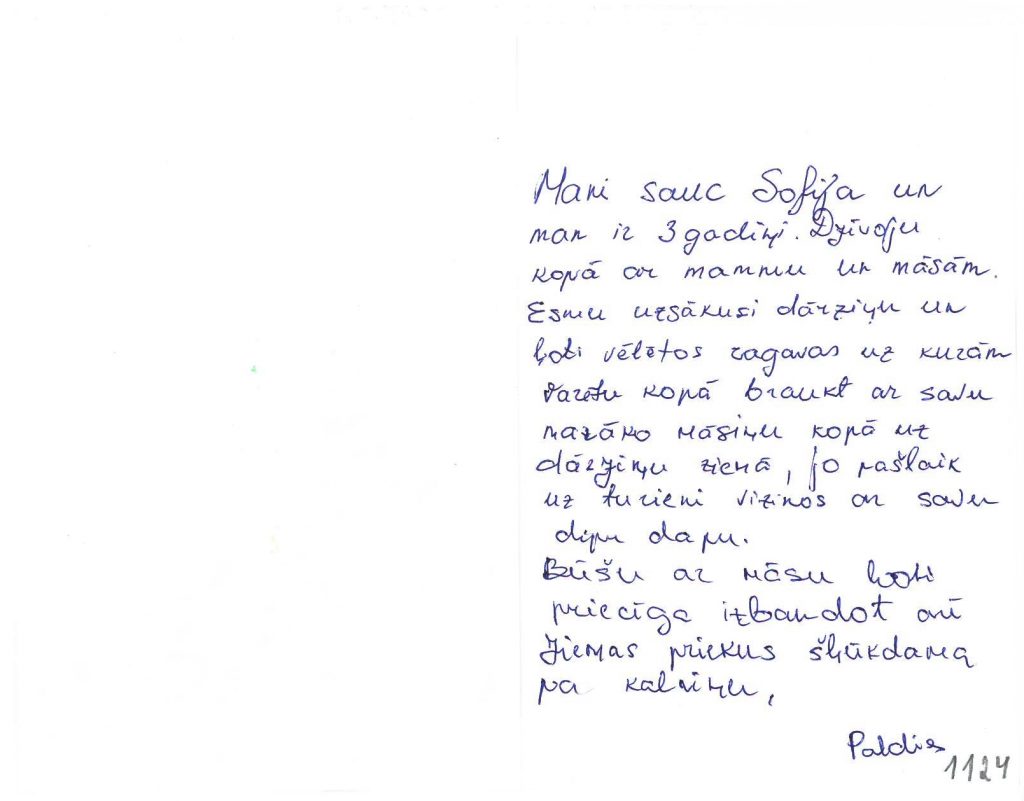 Mani sauc Sofija un
man ir 3 gadiņi. Dzīvoju
kopā ar mammu un māsām.
Esmu uzsākusi dārziņu un
ļoti vēlētos ragavas uz kurām
varētu kopā braukt ar savu
mazāko māsiņu kopā uz
dārziņu ziemā, jo pašlaik
uz turieni vizinos ar savu
dipu dapu.
Būšu ar māsu ļoti
priecīga izbaudot arī
ziemas priekus šļūkdama
pa kalniņu,
Paldies
1124